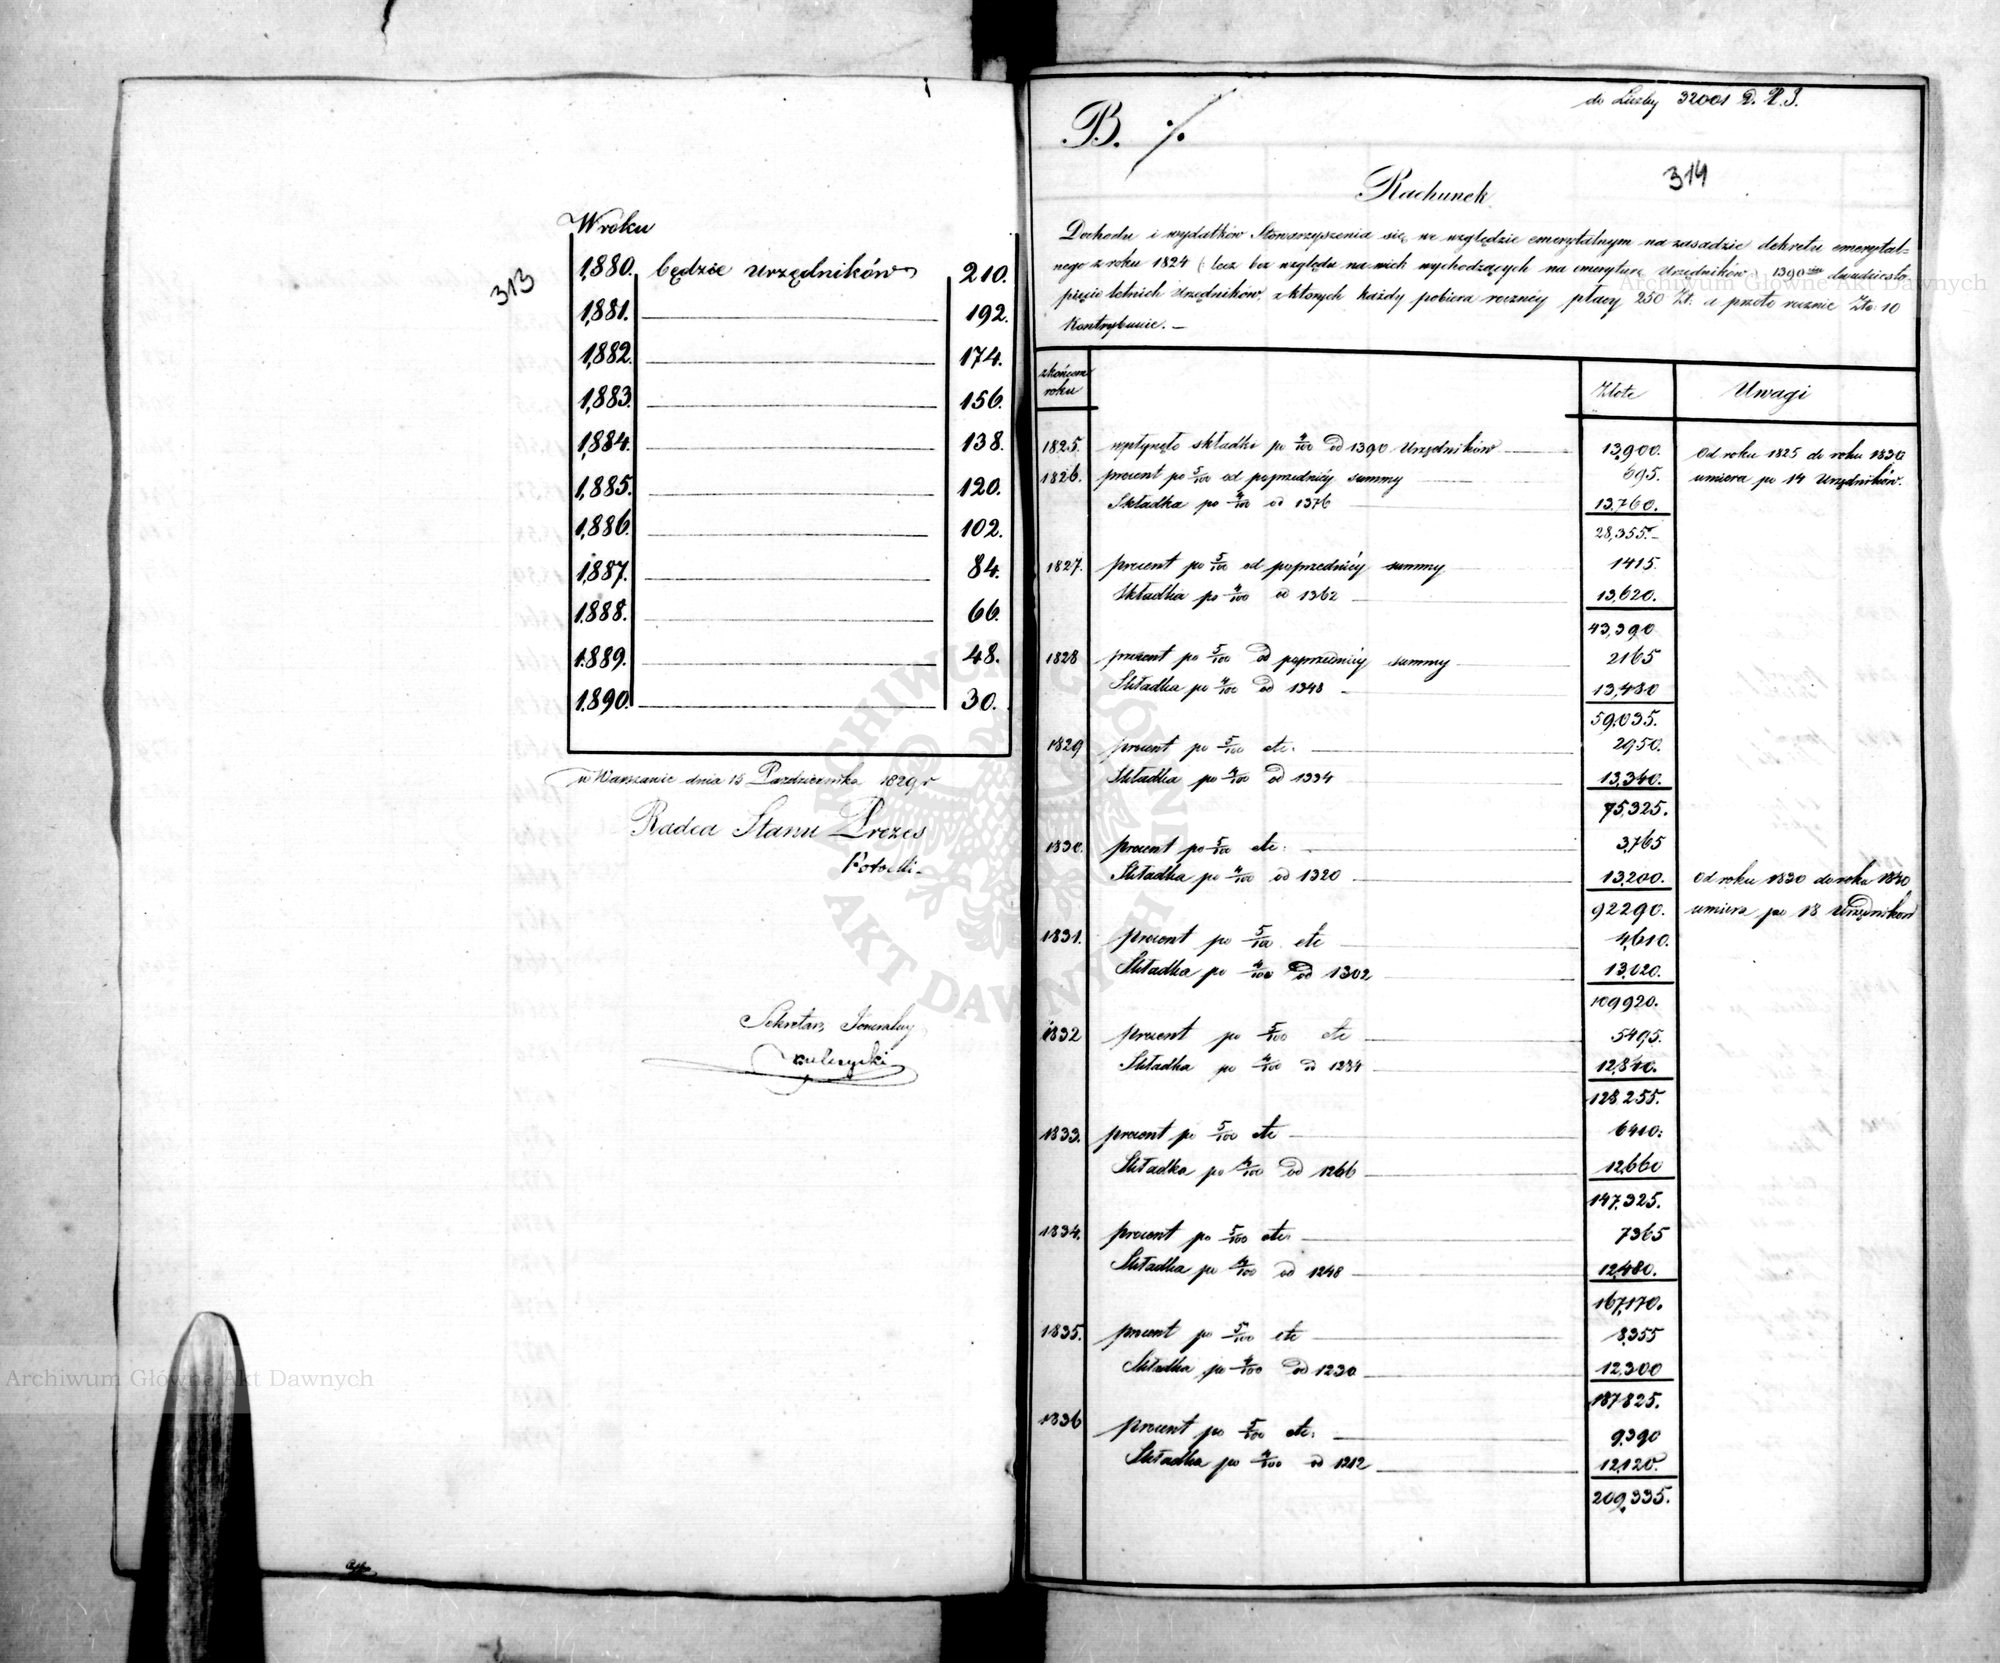 313
W roku
1,880. będzie urzędników 210.
1,881. 192.
1,882. 174.
1,883. 156.
1,884. 138.
1,885. 120.
1,886. 102.
1,887. 84.
1,888. 66.
1,889. 48.
1,890. 30.
w Warszawie dnia 15 Października 1829 r
Radca Stanu Prezes
Sekretarz Jeneralny
do Liczby 32001
B. ./.
314
Rachunek
Dochodu i wydatków Stowarzyszenia się we względzie emerytalnym na zasadzie dekretu emerytal-
nego z roku 1824 (lecz bez względu na wychodzących na emeryturę Urzędników) 1390 dwudziesto
pięcio letnich Urzędników, z których każdy pobiera roczniéy płacy 250 Zł: a przeto rocznie Złp: 10
Kontrybuuie. —
z końcem roku Złote Uwagi
1825. wpłynęło składki po 4/100 od 1390 Urzędników 13,900. Od roku 1825 do roku 1830
1826. procent po 5/100 od poprzedniéy summy 695. umiera po 14 Urzędników.
Składka po 4/100 od 1376 13,760.
28,355.—
1827. procent po 5/100 od poprzedniéy summy 1415.
Składka po 4/100 od 1362 13,620.
43,390
1828 procent po 5/100 od poprzedniéy summy 2165
Składka po 4/100 od 1348 13,480
59,035.
1829 procent po 5/100 etc. 2950.
Składka po 4/100 od 1334 13,340.
75,325.
1830. procent po 5/100 etc: 3,765
Składka po 4/100 od 1320 13,200. Od roku 1830 do roku 1840
92290. umiera po 18 Urzędników
1831. procent po 5/100 etc 4,610.
Składka po 4/100 od 1302 13,020.
109920.
1832 procent po 5/100 etc 5495.
Składka po 4/100 od 1284 12,840.
128,255.
1833. procent po 5/100 etc 6410:
Składka po 4/100 od 1266 12,660
147,325.
1834. procent po 5/100 etc 7365
Składka po 4/100 od 1248 12,480.
167,170.
1835. procent po 5/100 etc 8,355
Składka po 4/100 od 1230 12,300
187825.
1836 procent po 5/100 etc: 9,390
Składka po 4/100 od 1212 12,120.
209,335.
Archiwum Główne Akt Dawnych
Archiwum Główne Akt Dawnych
ARCHIWUM GŁÓWNE AKT DAWNYCH